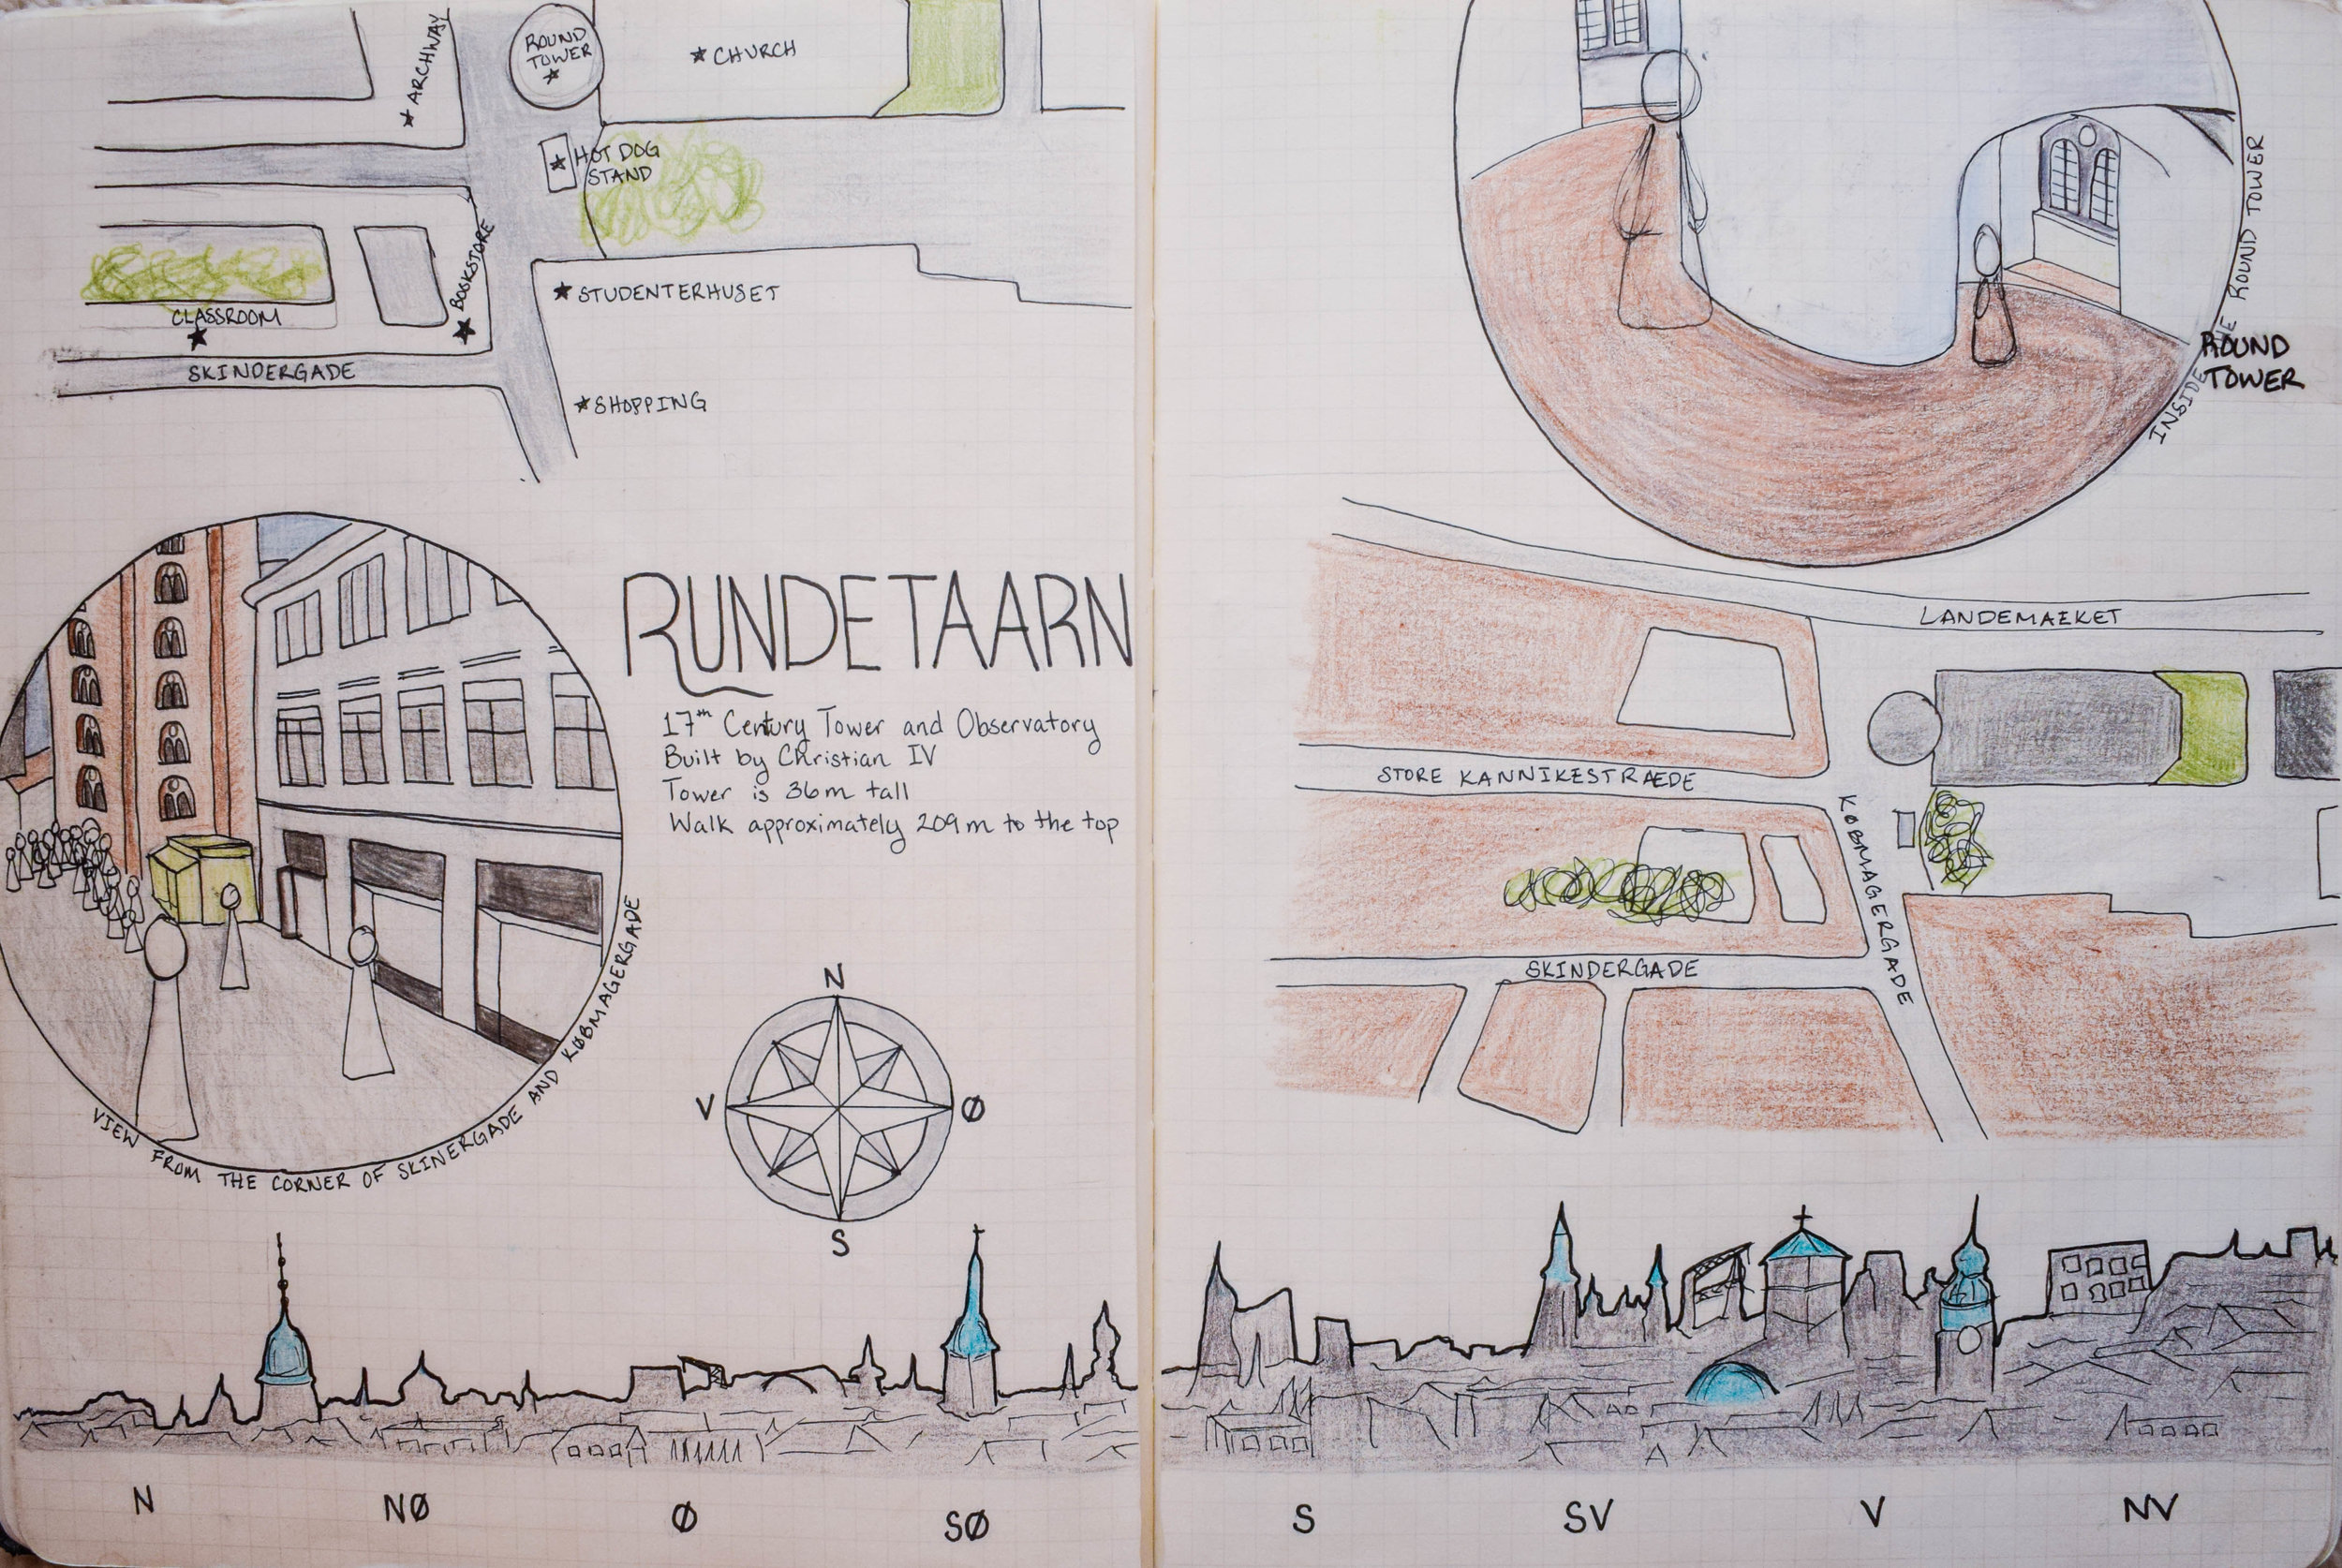 ★ ARCHWAY
ROUND
TOWER
★
★ CHURCH
★ HOT DOG
STAND
★ BOOKSTORE
★ STUDENTERHUSET
CLASSROOM
★
SKINDERGADE
★ SHOPPING
RUNDETAARN
17th Century Tower and Observatory
Built by Christian IV
Tower is 36m tall
Walk approximately 209m to the top
VIEW FROM THE CORNER OF SKINERGADE AND KØBMAGERGADE
N
V
Ø
S
N
NØ
Ø
SØ
INSIDE THE ROUND TOWER
ROUND
TOWER
LANDEMAEKET
STORE KANNIKESTRAEDE
KØBMAGERGADE
SKINDERGADE
S
SV
V
NV